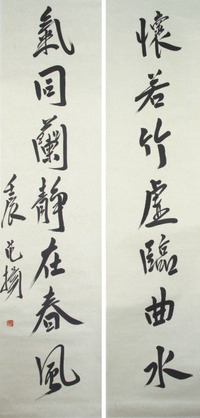 懷若竹虛臨曲水
氣同蘭靜在春風
壬辰